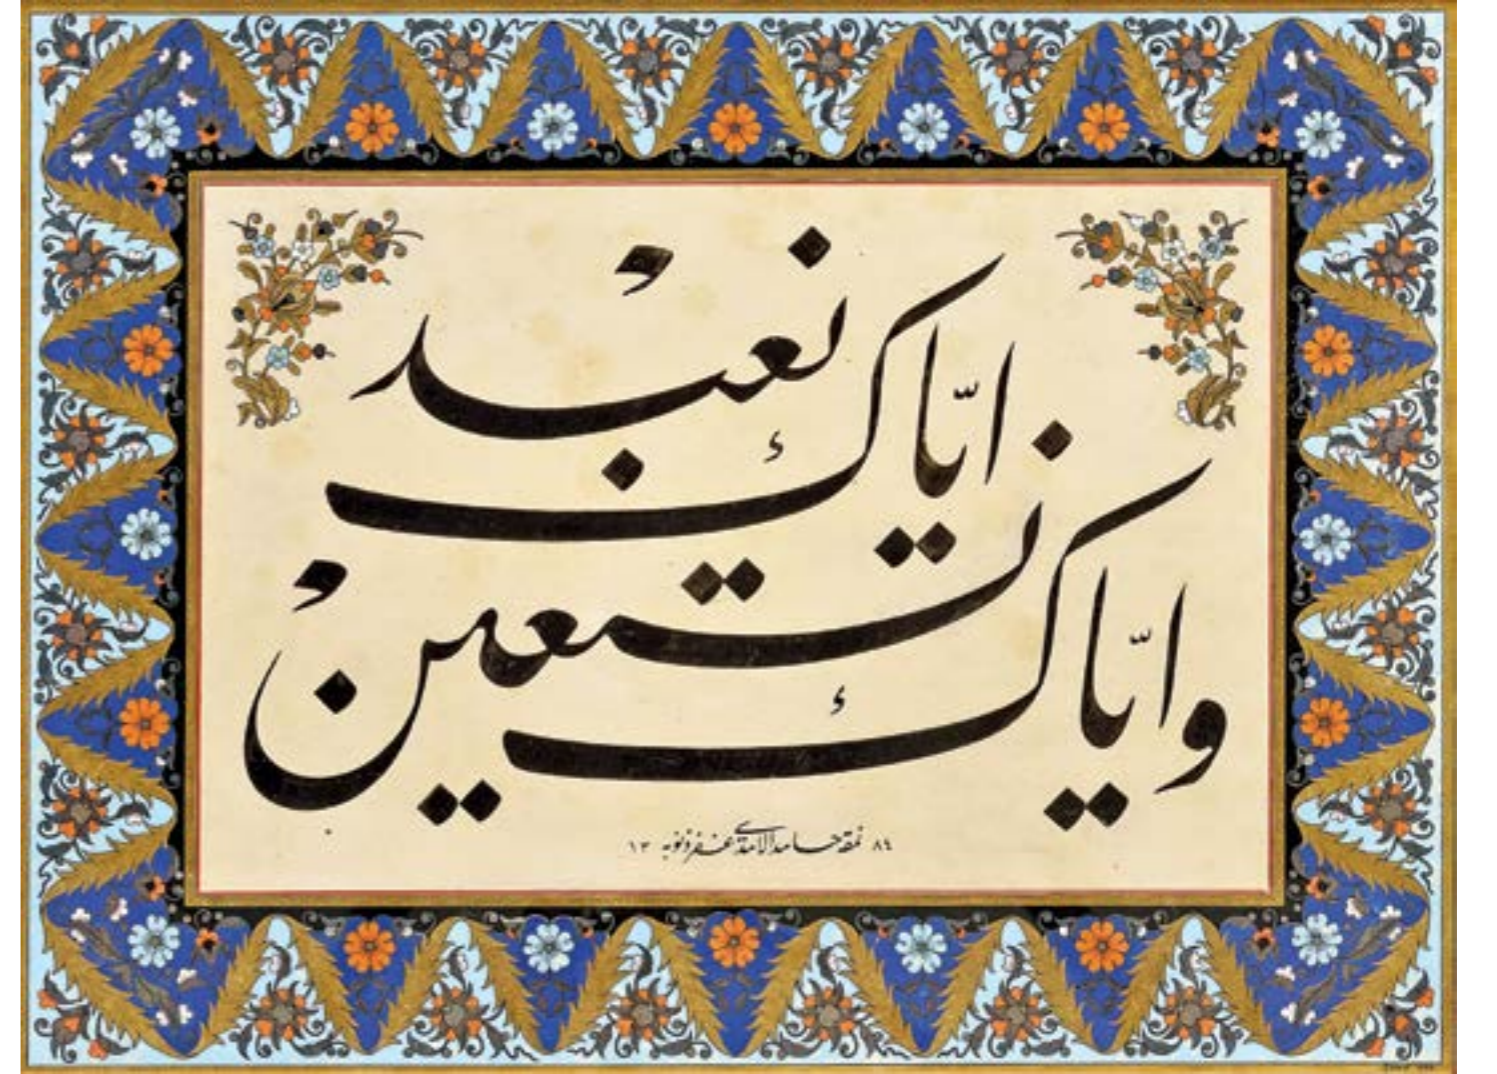 اياّك نعبد
واياّك نستعين
نمقه حامد الآمدي غفر ذنوبه ١٣٨٤